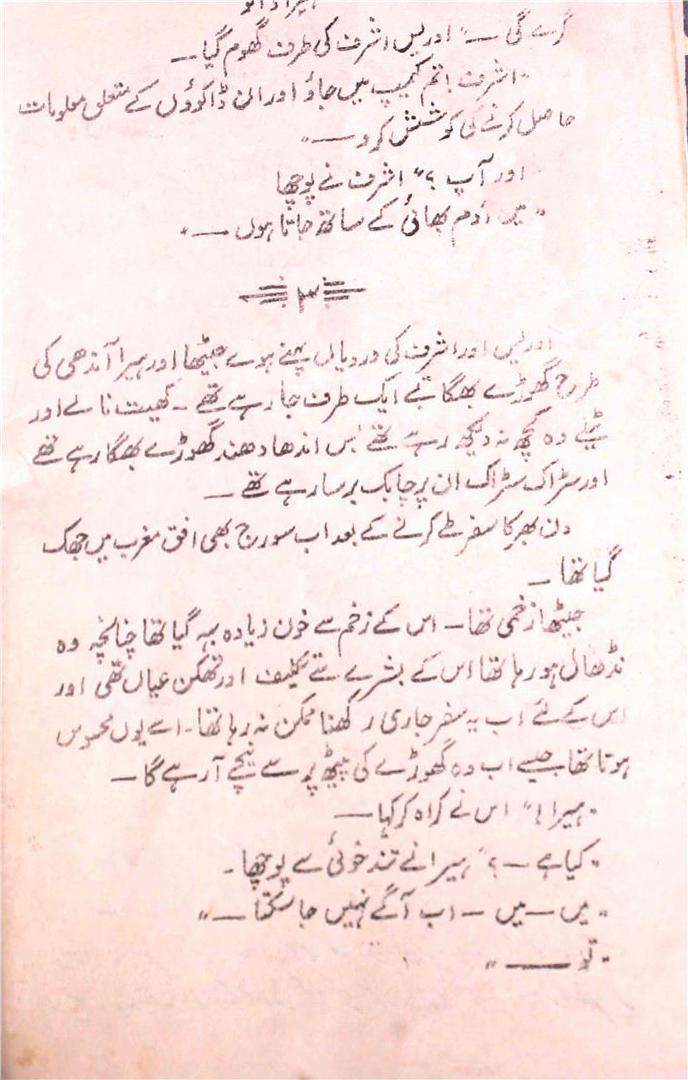 ہیرا ڈاکو
کرے گی —" ادریس اشرف کی طرف گھوم گیا۔
"اشرف! تم کیمپ میں جاؤ اور ان ڈاکوؤں کے متعلق معلومات
حاصل کرنے کی کوشش کرو —"
"اور آپ ؟" اشرف نے پوچھا
"میں آدم بھائی کے ساتھ جاتا ہوں —"
۳
ادریس اور اشرف کی وردیاں پہنے ہوے جیٹھا اور ہیرا آندھی کی
طرح گھوڑے بھگاتے ایک طرف جا رہے تھے۔ کھیت نالے اور
ٹیلے وہ کچھ نہ دیکھ رہے تھے بس اندھا دھند گھوڑے بھگا رہے تھے
اور سٹراک سٹراک ان پر چابک برسا رہے تھے —
دن بھر کا سفر طے کرنے کے بعد اب سورج بھی افق مغرب میں جھک
گیا تھا —
جیٹھا زخمی تھا — اس کے زخم سے خون زیادہ بہہ گیا تھا چنانچہ وہ
نڈھال ہو رہا تھا اس کے بشرے سے تکلیف اور تھکن عیاں تھی اور
اس کے لئے اب یہ سفر جاری رکھنا ممکن نہ رہا تھا۔ اسے یوں محسوس
ہوتا تھا جیسے اب وہ گھوڑے کی پیٹھ پر سے نیچے آ رہے گا —
"ہیرا!" اس نے کراہ کر کہا —
"کیا ہے — ؟" ہیرا نے تند خوئی سے پوچھا۔
"میں — میں — اب آگے نہیں جا سکتا —"
"تو —"